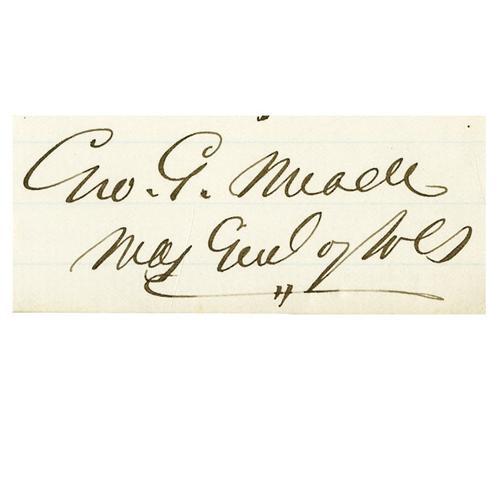 Geo. G. Meade
Maj Genl of Vols